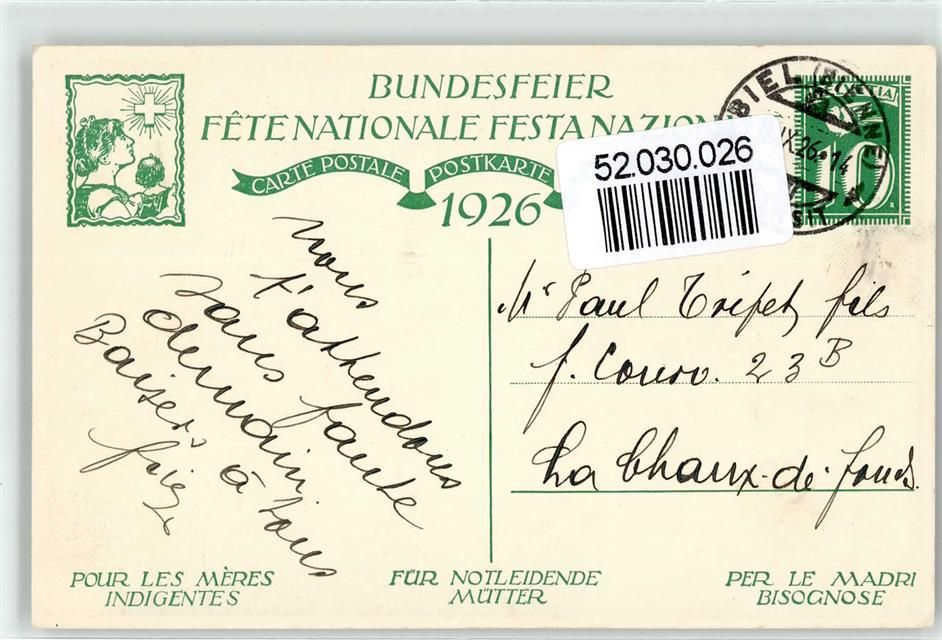 BUNDESFEIER
FÊTE NATIONALE FESTA NAZION
CARTE POSTALE POSTKARTE
1926
52.030.026
BIEL (BIENNE)
IX.26.14
HELVETIA
10
nous
t'attendons
sans faute
demain,
Baisers à tous
Mr Paul Tripet fils
f. Courv. 23 B
La Chaux-de-fonds.
POUR LES MÈRES
INDIGENTES
FÜR NOTLEIDENDE
MÜTTER
PER LE MADRI
BISOGNOSE